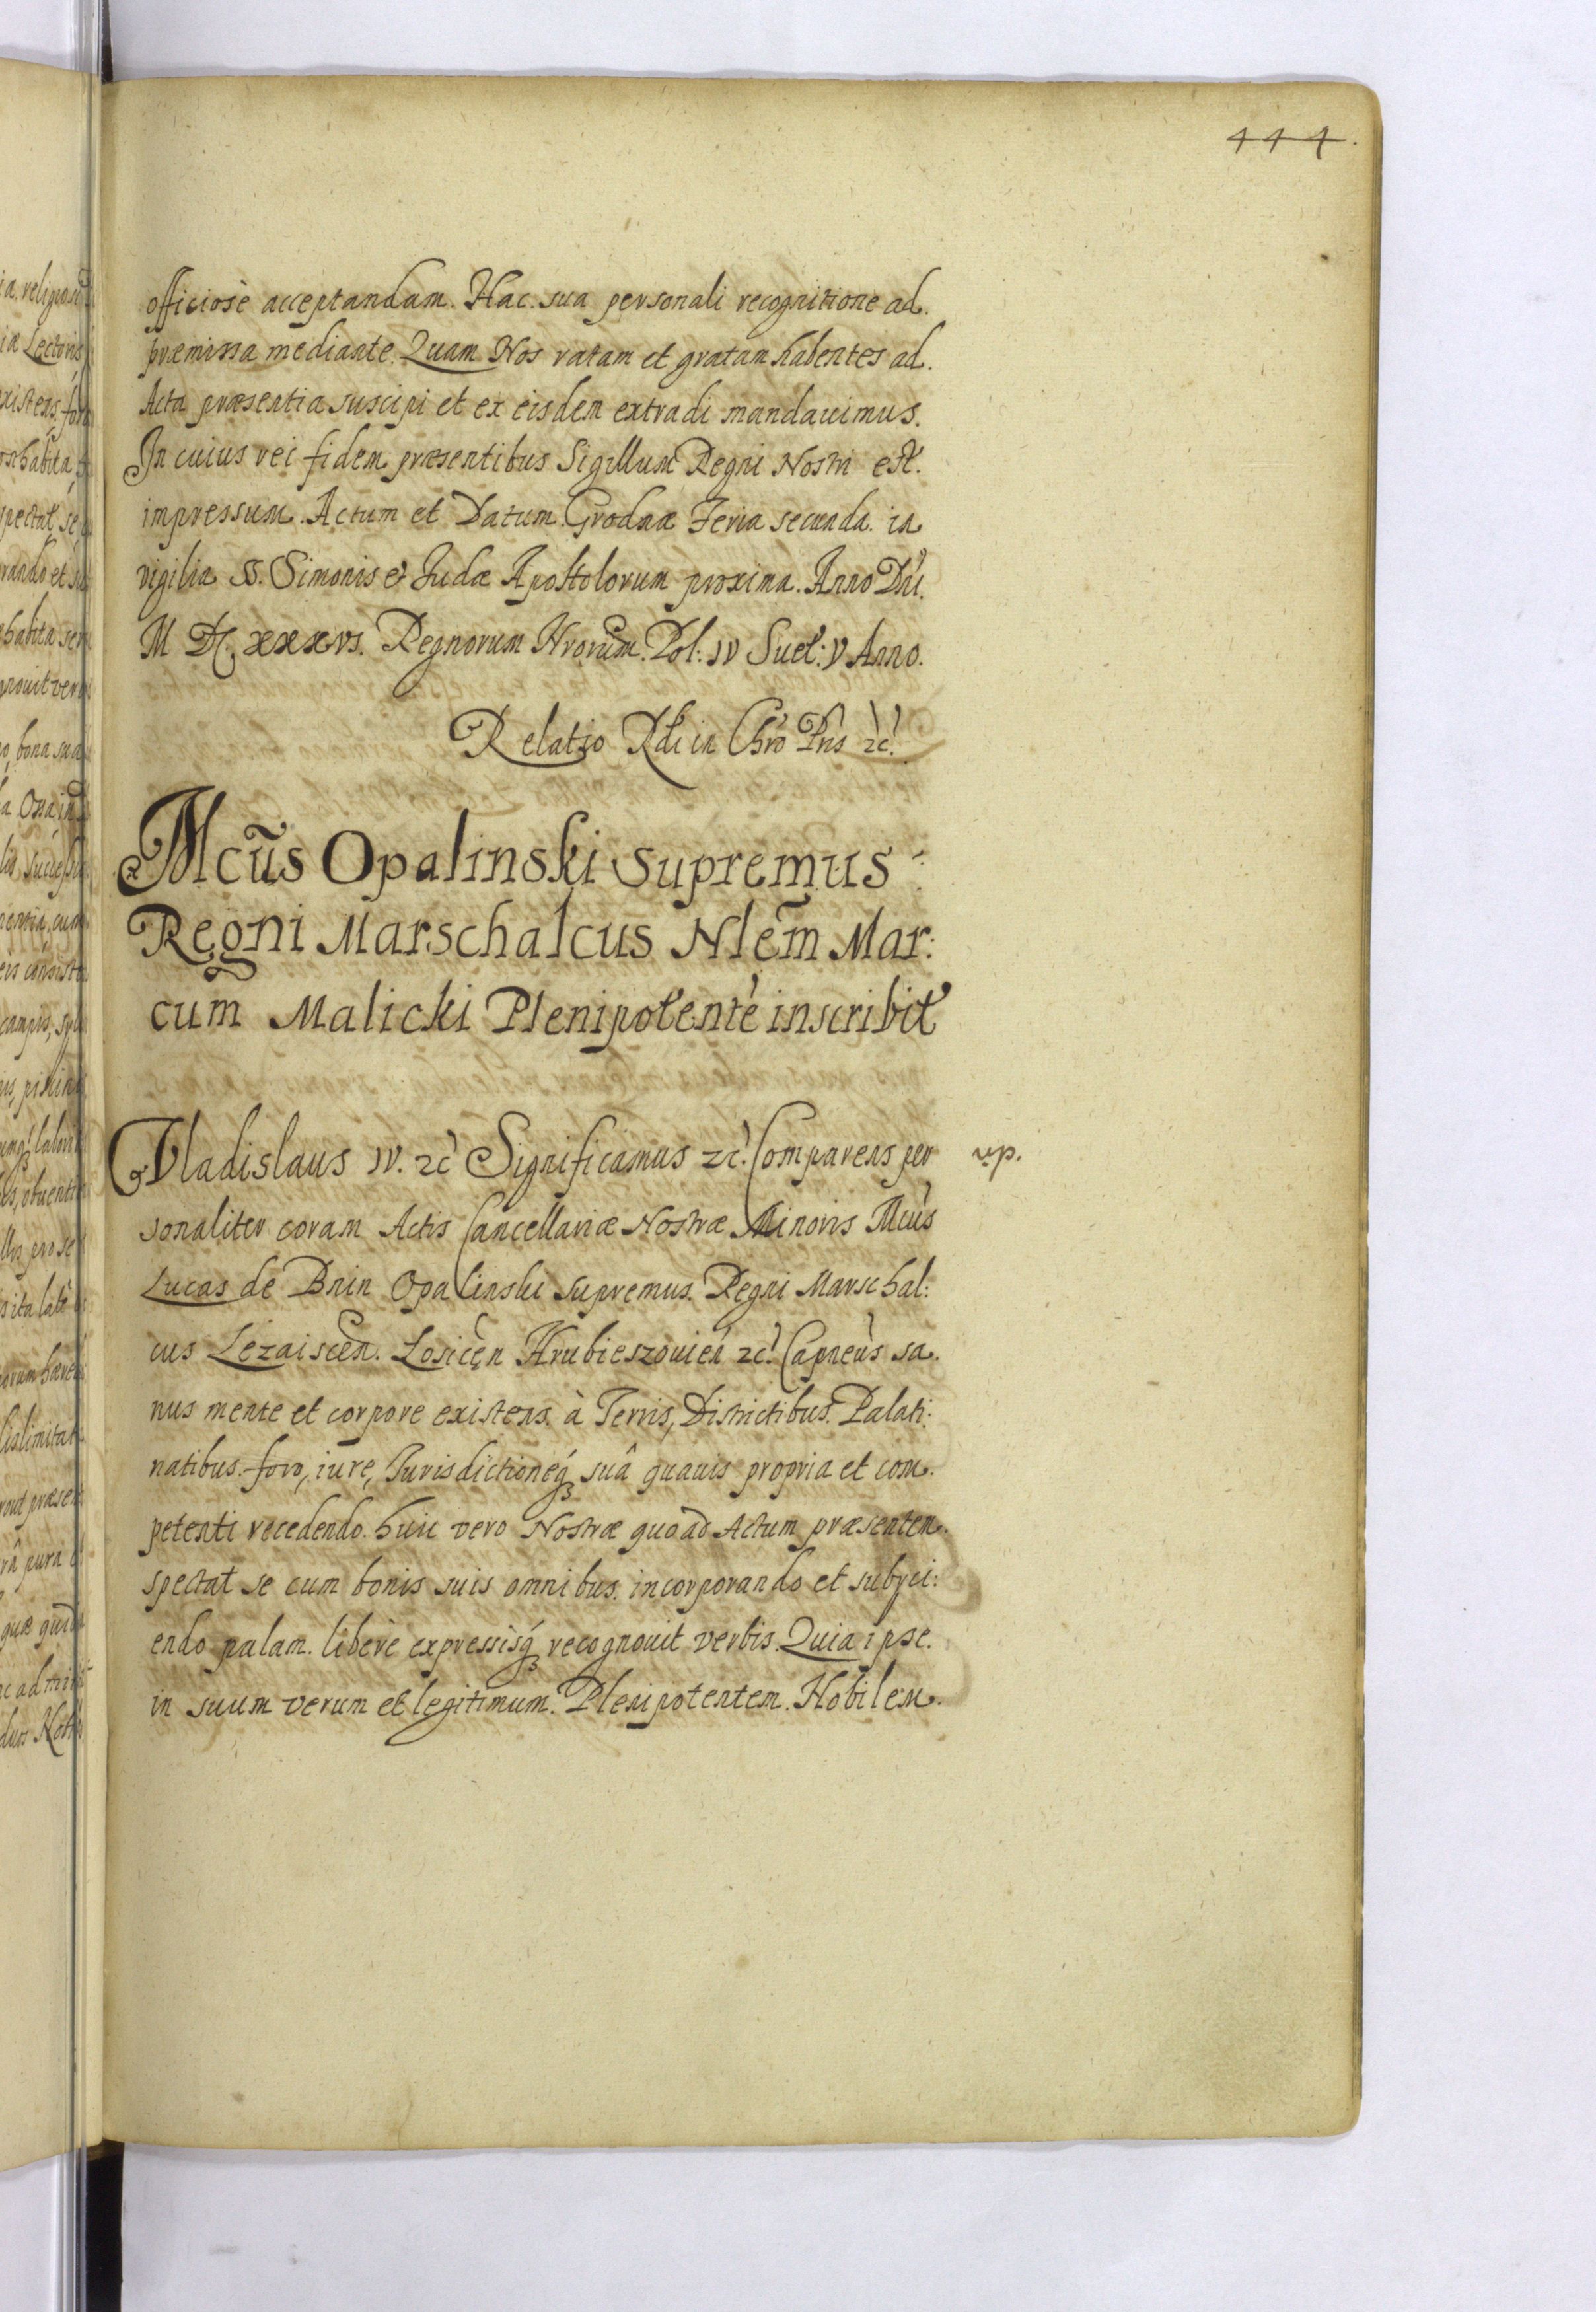 444.
officiosè acceptandam. Hac. sua personali recognitione ad.
præmissa mediante. Quam Nos ratam et gratam habentes ad.
Acta præsentia suscipi et ex eisdem extradi mandauimus.
In cuius rei fidem præsentibus Sigillum Regni Nostri est.
impressum. Actum et Datum. Grodnæ Feria secunda. in
vigilia SS. Simonis et Judæ Apostolorum proxima. Anno Dni.
M DC. XXXVI. Regnorum Nrorum. Pol: IV Suet: V Anno.
Relatio Rdi in Chro Pris etc.
Mcus Opalinski Supremus
Regni Marschalcus Nlem Mar:
cum Malicki Plenipotente inscribit
Vladislaus IV. etc Significamus etc. Comparens per
sonaliter coram Actis Cancellariæ Nostræ Minoris Mcus
Lucas de Bnin Opalinski Supremus. Regni Marschal:
cus Lezaiscen. Łosicen Hrubieszouien etc. Capneus sa.
nus mente et corpore existens. à Terris, Districtibus. Palati:
natibus. foro, iure, Jurisdictioneq suâ quauis propria et com.
petenti recedendo. huic vero Nostræ quoad Actum præsentem.
spectat se cum bonis suis omnibus. incorporando et subyci:
endo palam. liberè expressisq recognouit verbis. Quia ipse.
in suum verum et legitimum. Plenipotentem. Nobilem.